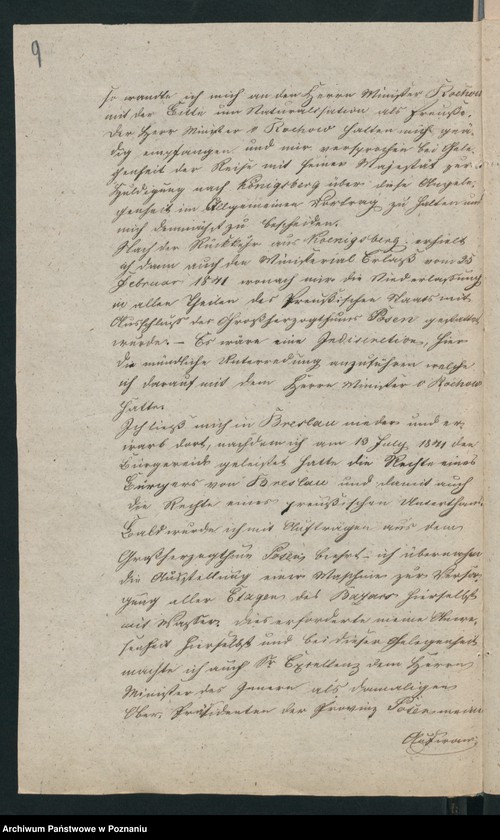 9
so wandte ich mich an den Herrn Minister Rochow
mit der Bitte um Naturalisation als Preuße.
Der Herr Minister v Rochow hatten mich gnä-
dig empfangen und mir versprochen bei Gele-
genheit der Reise mit Seiner Majestät zur
Huldigung nach Königsberg über diese Angele-
genheit im Allgemeinen Vortrag zu halten und
mich demnächst zu bescheiden.
Nach der Rückkehr aus Koenigsberg erhielt
ich dann auch den Ministerial Erlaß vom 25
Februar 1841 wonach mir die Niederlassung
in allen Theilen des Preußischen Staats mit
Ausschluss des Großherzogthums Posen gestattet
wurde. – Es wäre eine Indiscretion, hier
die mündliche Unterredung anzuführen welche
ich darauf mit dem Herrn Minister v Rochow
hatte.
Ich ließ mich in Breslau nieder und er-
warb dort, nachdem ich am 13 July 1841 den
Bürgereid geleistet hatte die Rechte eines
Bürgers von Breslau und damit auch
die Rechte eines preußischen Unterthans
Bald wurde ich mit Aufträgen aus dem
Großherzogthum Posen beehrt; ich übernahm
die Aufstellung einer Maschine zur Versor-
gung aller Etagen des Bazars hierselbst
mit Wasser, dies erforderte meine Anwe-
senheit hierselbst und bei dieser Gelegenheit
machte ich auch Sr Excellenz dem Herrn
Minister des Innern als damaligen
Ober Präsidenten der Provinz Posen meine
Archiwum Państwowe w Poznaniu